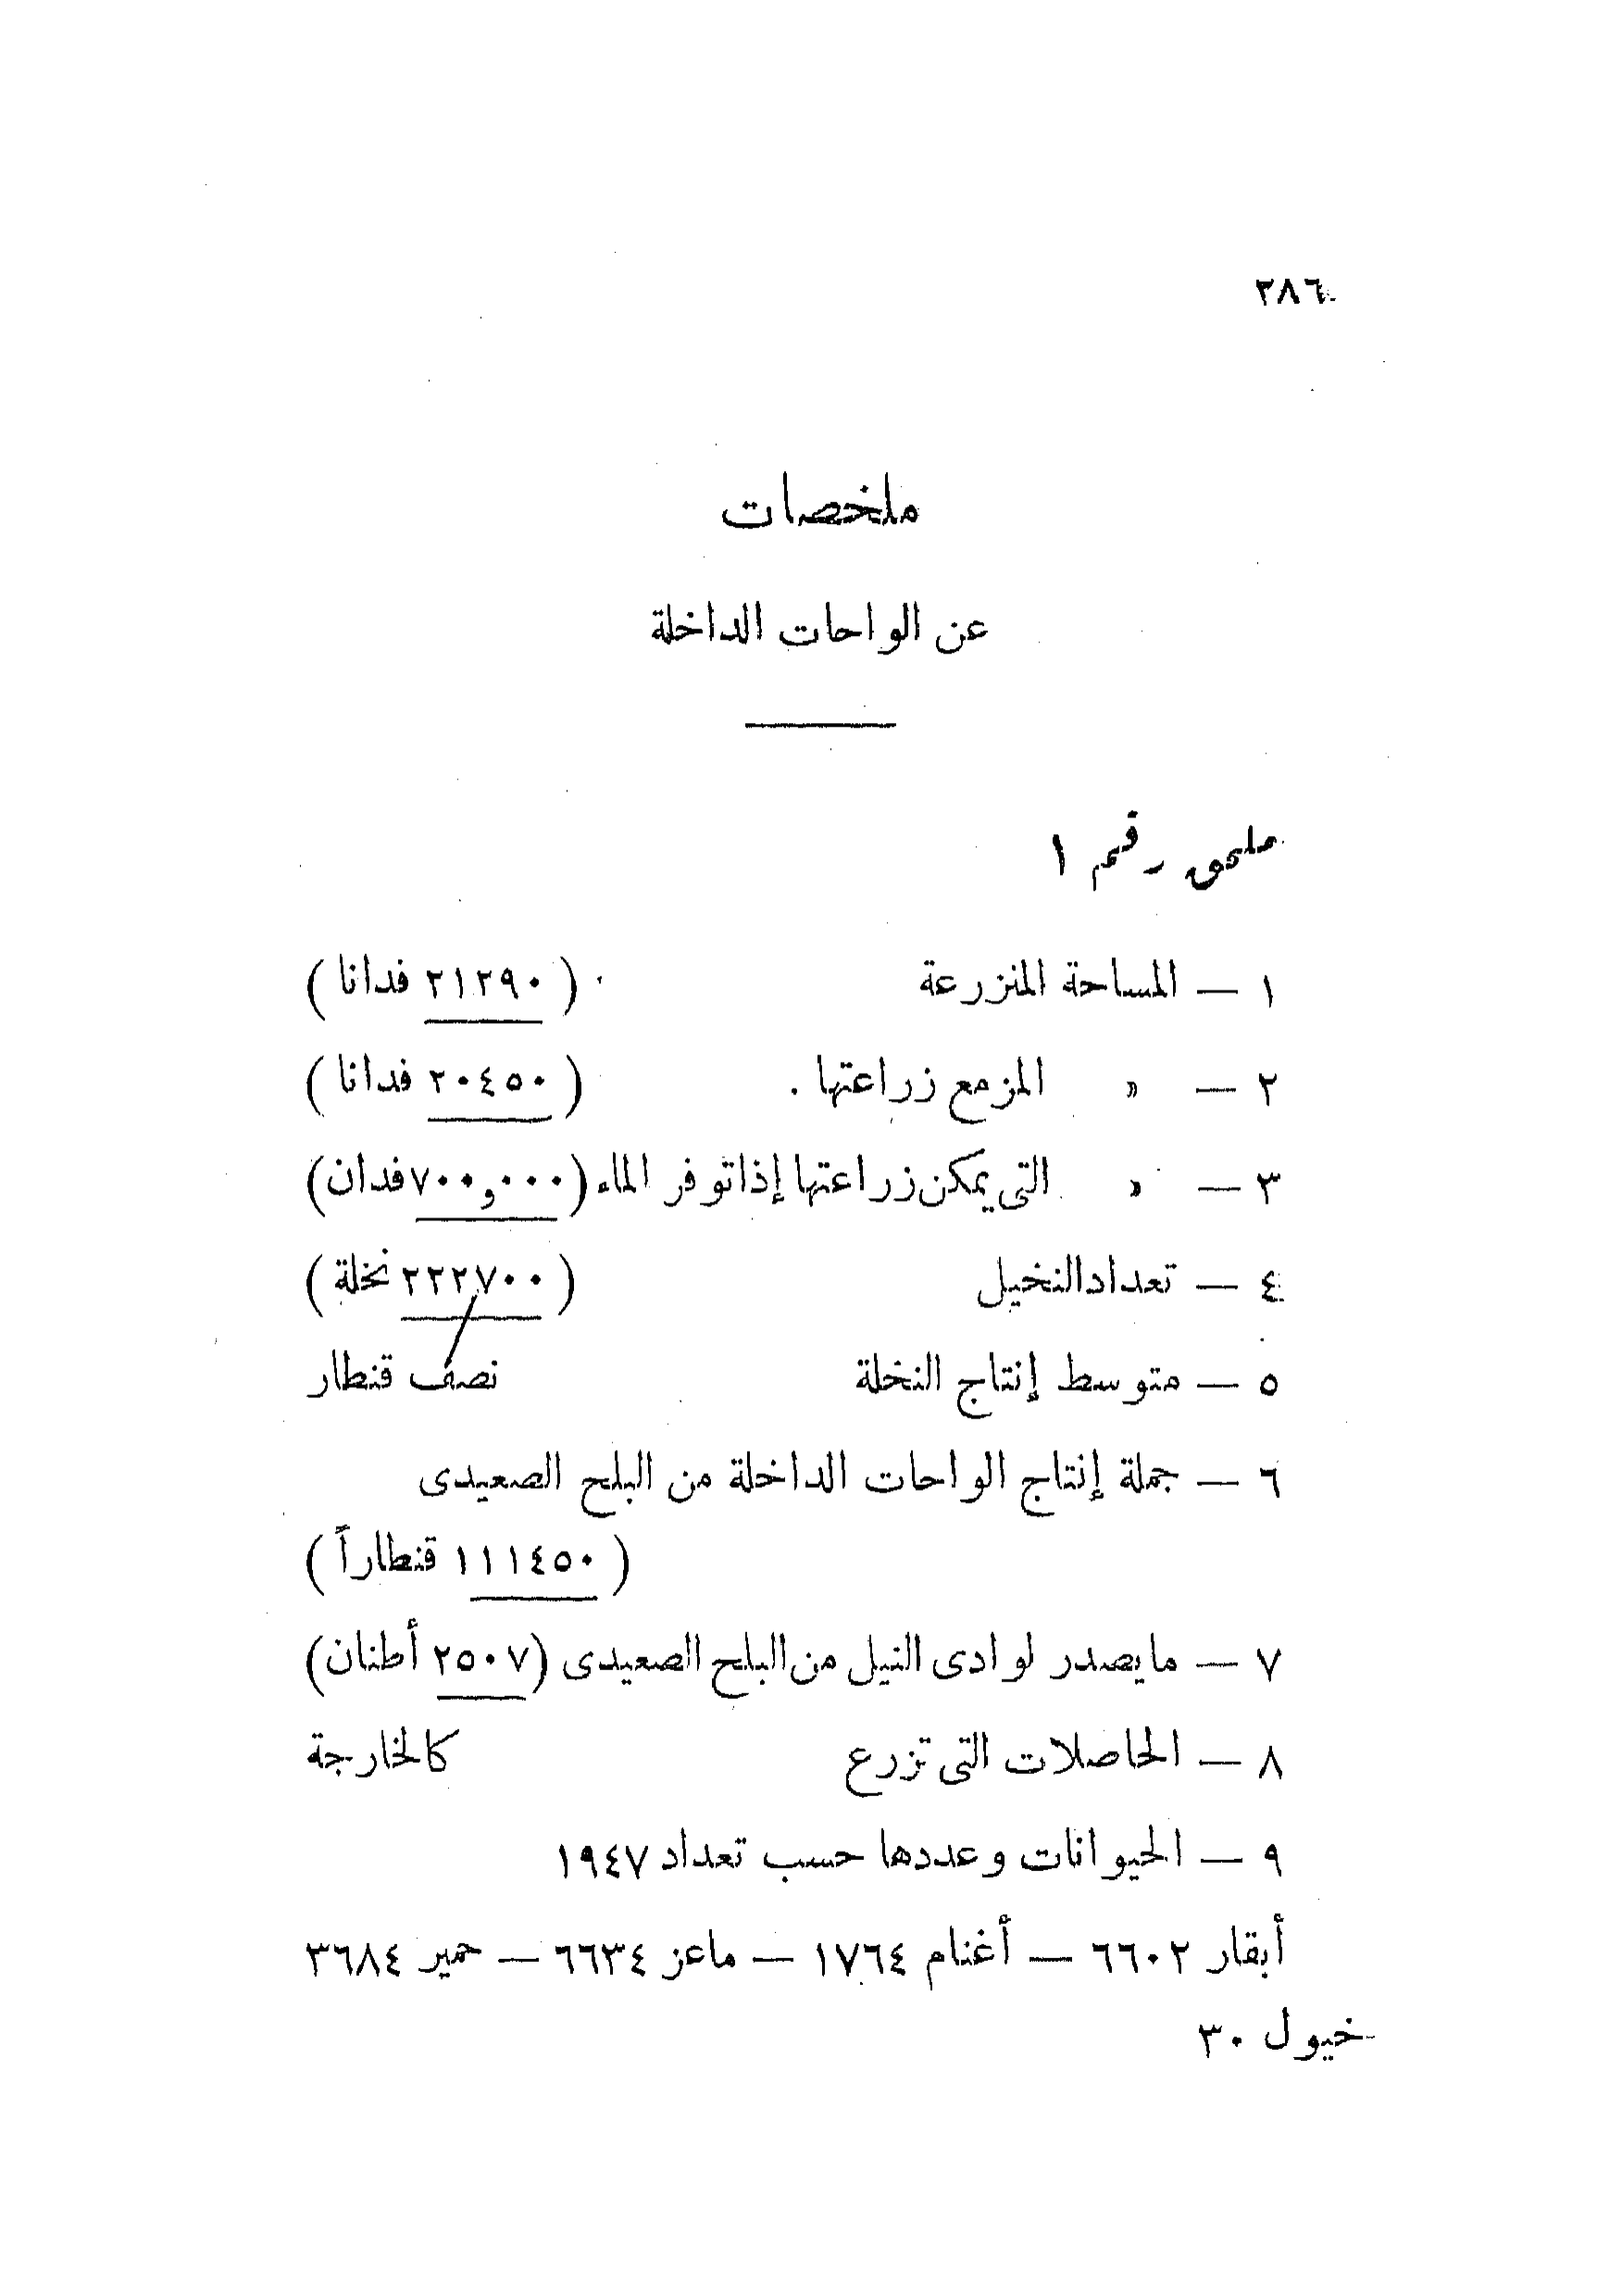 ٢٨٦
ملخصات
عن الواحات الداخلة
ملحق رقم ١
١ — المساحة المنزرعة ( ٢١٢٩٠ فدانا )
٢ — » المزمع زراعتها . ( ٢٠٤٥٠ فدانا )
٣ — » التى يمكن زراعتها إذا توفر الماء (٧٠٠و٠٠٠ فدان)
٤ — تعداد النخيل ( ٢٢٢٧٠٠ نخلة )
٥ — متوسط إنتاج النخلة نصف قنطار
٦ — جملة إنتاج الواحات الداخلة من البلح الصعيدى
( ١١١٤٥٠ قنطاراً )
٧ — ما يصدر لوادى النيل من البلح الصعيدى (٢٥٠٧ أطنان)
٨ — الحاصلات التى تزرع كالخارجة
٩ — الحيوانات وعددها حسب تعداد ١٩٤٧
أبقار ٦٦٠٢ — أغنام ١٧٦٤ — ماعز ٦٦٣٤ — حمير ٣٦٨٤
خيول ٣٠